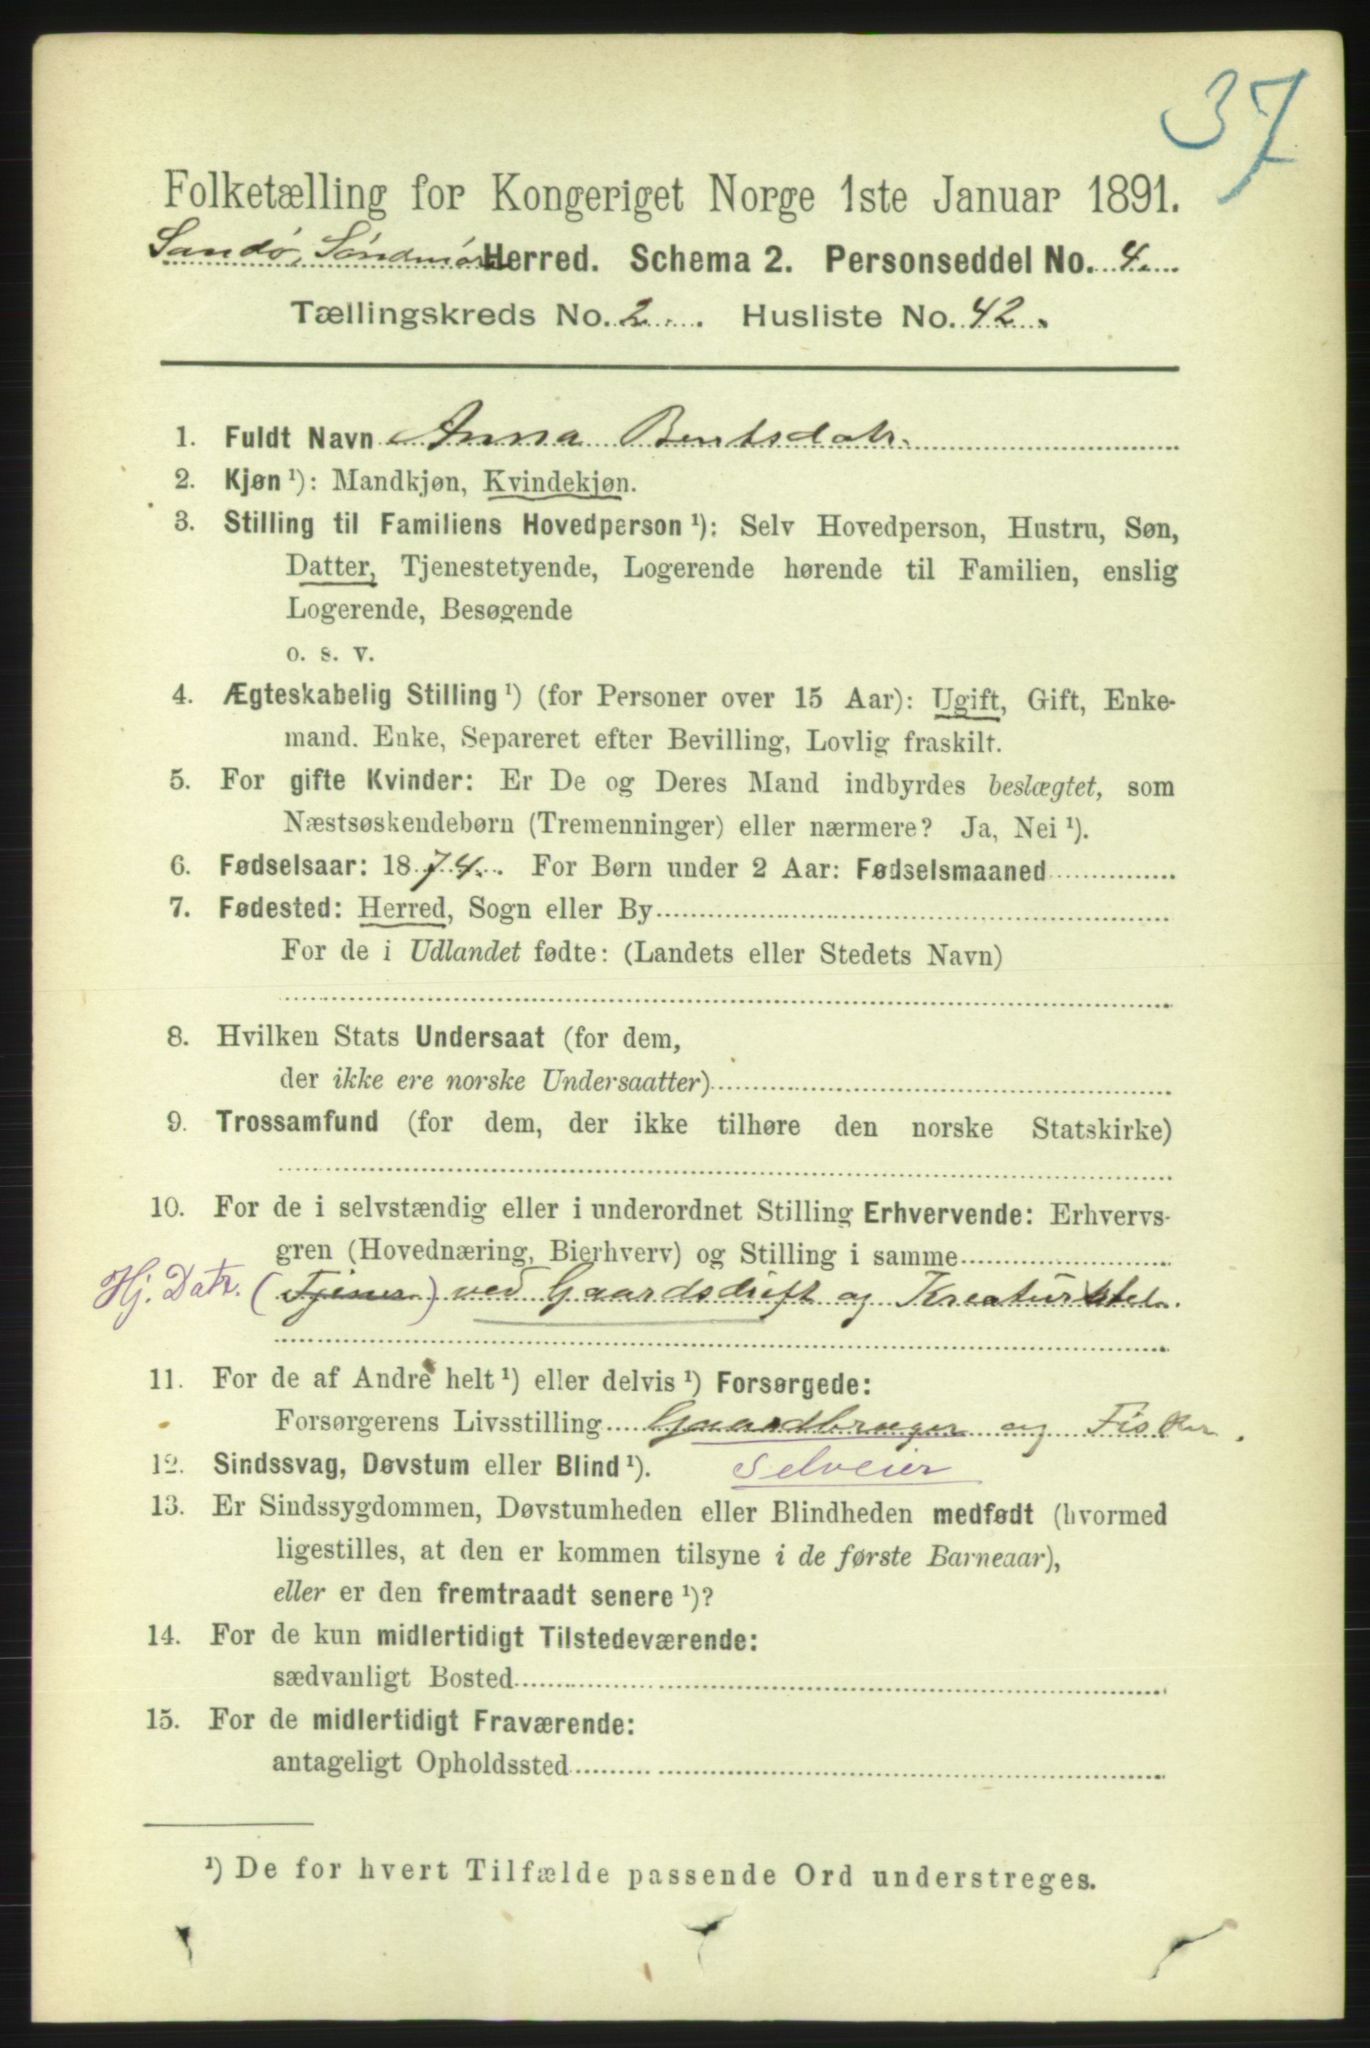 37
Folketælling for Kongeriget Norge 1ste Januar 1891.
Sandø, Søndmøre Herred. Schema 2. Personseddel No. 4.
Tællingskreds No. 2. Husliste No. 42.
1. Fuldt Navn Anna Bentsdatr.
2. Kjøn ¹): Mandkjøn, Kvindekjøn.
3. Stilling til Familiens Hovedperson ¹): Selv Hovedperson, Hustru, Søn,
Datter, Tjenestetyende, Logerende hørende til Familien, enslig
Logerende, Besøgende
o. s. v.
4. Ægteskabelig Stilling ¹) (for Personer over 15 Aar): Ugift, Gift, Enke-
mand. Enke, Separeret efter Bevilling, Lovlig fraskilt.
5. For gifte Kvinder: Er De og Deres Mand indbyrdes beslægtet, som
Næstsøskendebørn (Tremenninger) eller nærmere? Ja, Nei ¹).
6. Fødselsaar: 1874. For Børn under 2 Aar: Fødselsmaaned
7. Fødested: Herred, Sogn eller By
For de i Udlandet fødte: (Landets eller Stedets Navn)
8. Hvilken Stats Undersaat (for dem,
der ikke ere norske Undersaatter)
9. Trossamfund (for dem, der ikke tilhøre den norske Statskirke)
10. For de i selvstændig eller i underordnet Stilling Erhvervende: Erhvervs-
gren (Hovednæring, Bierhverv) og Stilling i samme
Hj. Datr. (Tjener) ved Gaardsdrift og Kreaturstel.
11. For de af Andre helt ¹) eller delvis ¹) Forsørgede:
Forsørgerens Livsstilling Gaardbruger og Fisker.
12. Sindssvag, Døvstum eller Blind ¹). Selveier
13. Er Sindssygdommen, Døvstumheden eller Blindheden medfødt (hvormed
ligestilles, at den er kommen tilsyne i de første Barneaar),
eller er den fremtraadt senere ¹)?
14. For de kun midlertidigt Tilstedeværende:
sædvanligt Bosted
15. For de midlertidigt Fraværende:
antageligt Opholdssted
¹) De for hvert Tilfælde passende Ord understreges.